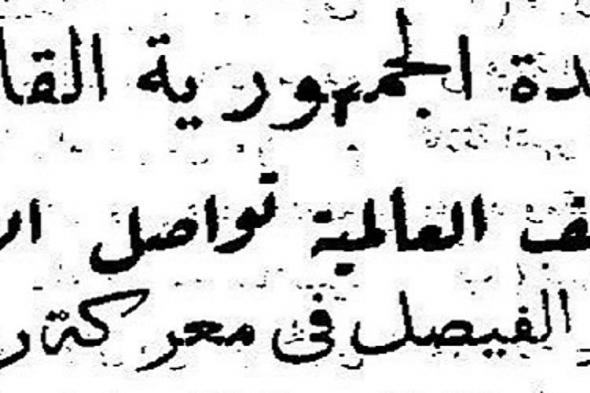 دة الجمهورية القا
ف العالمية تواصل ال
الفيصل في معركة ر